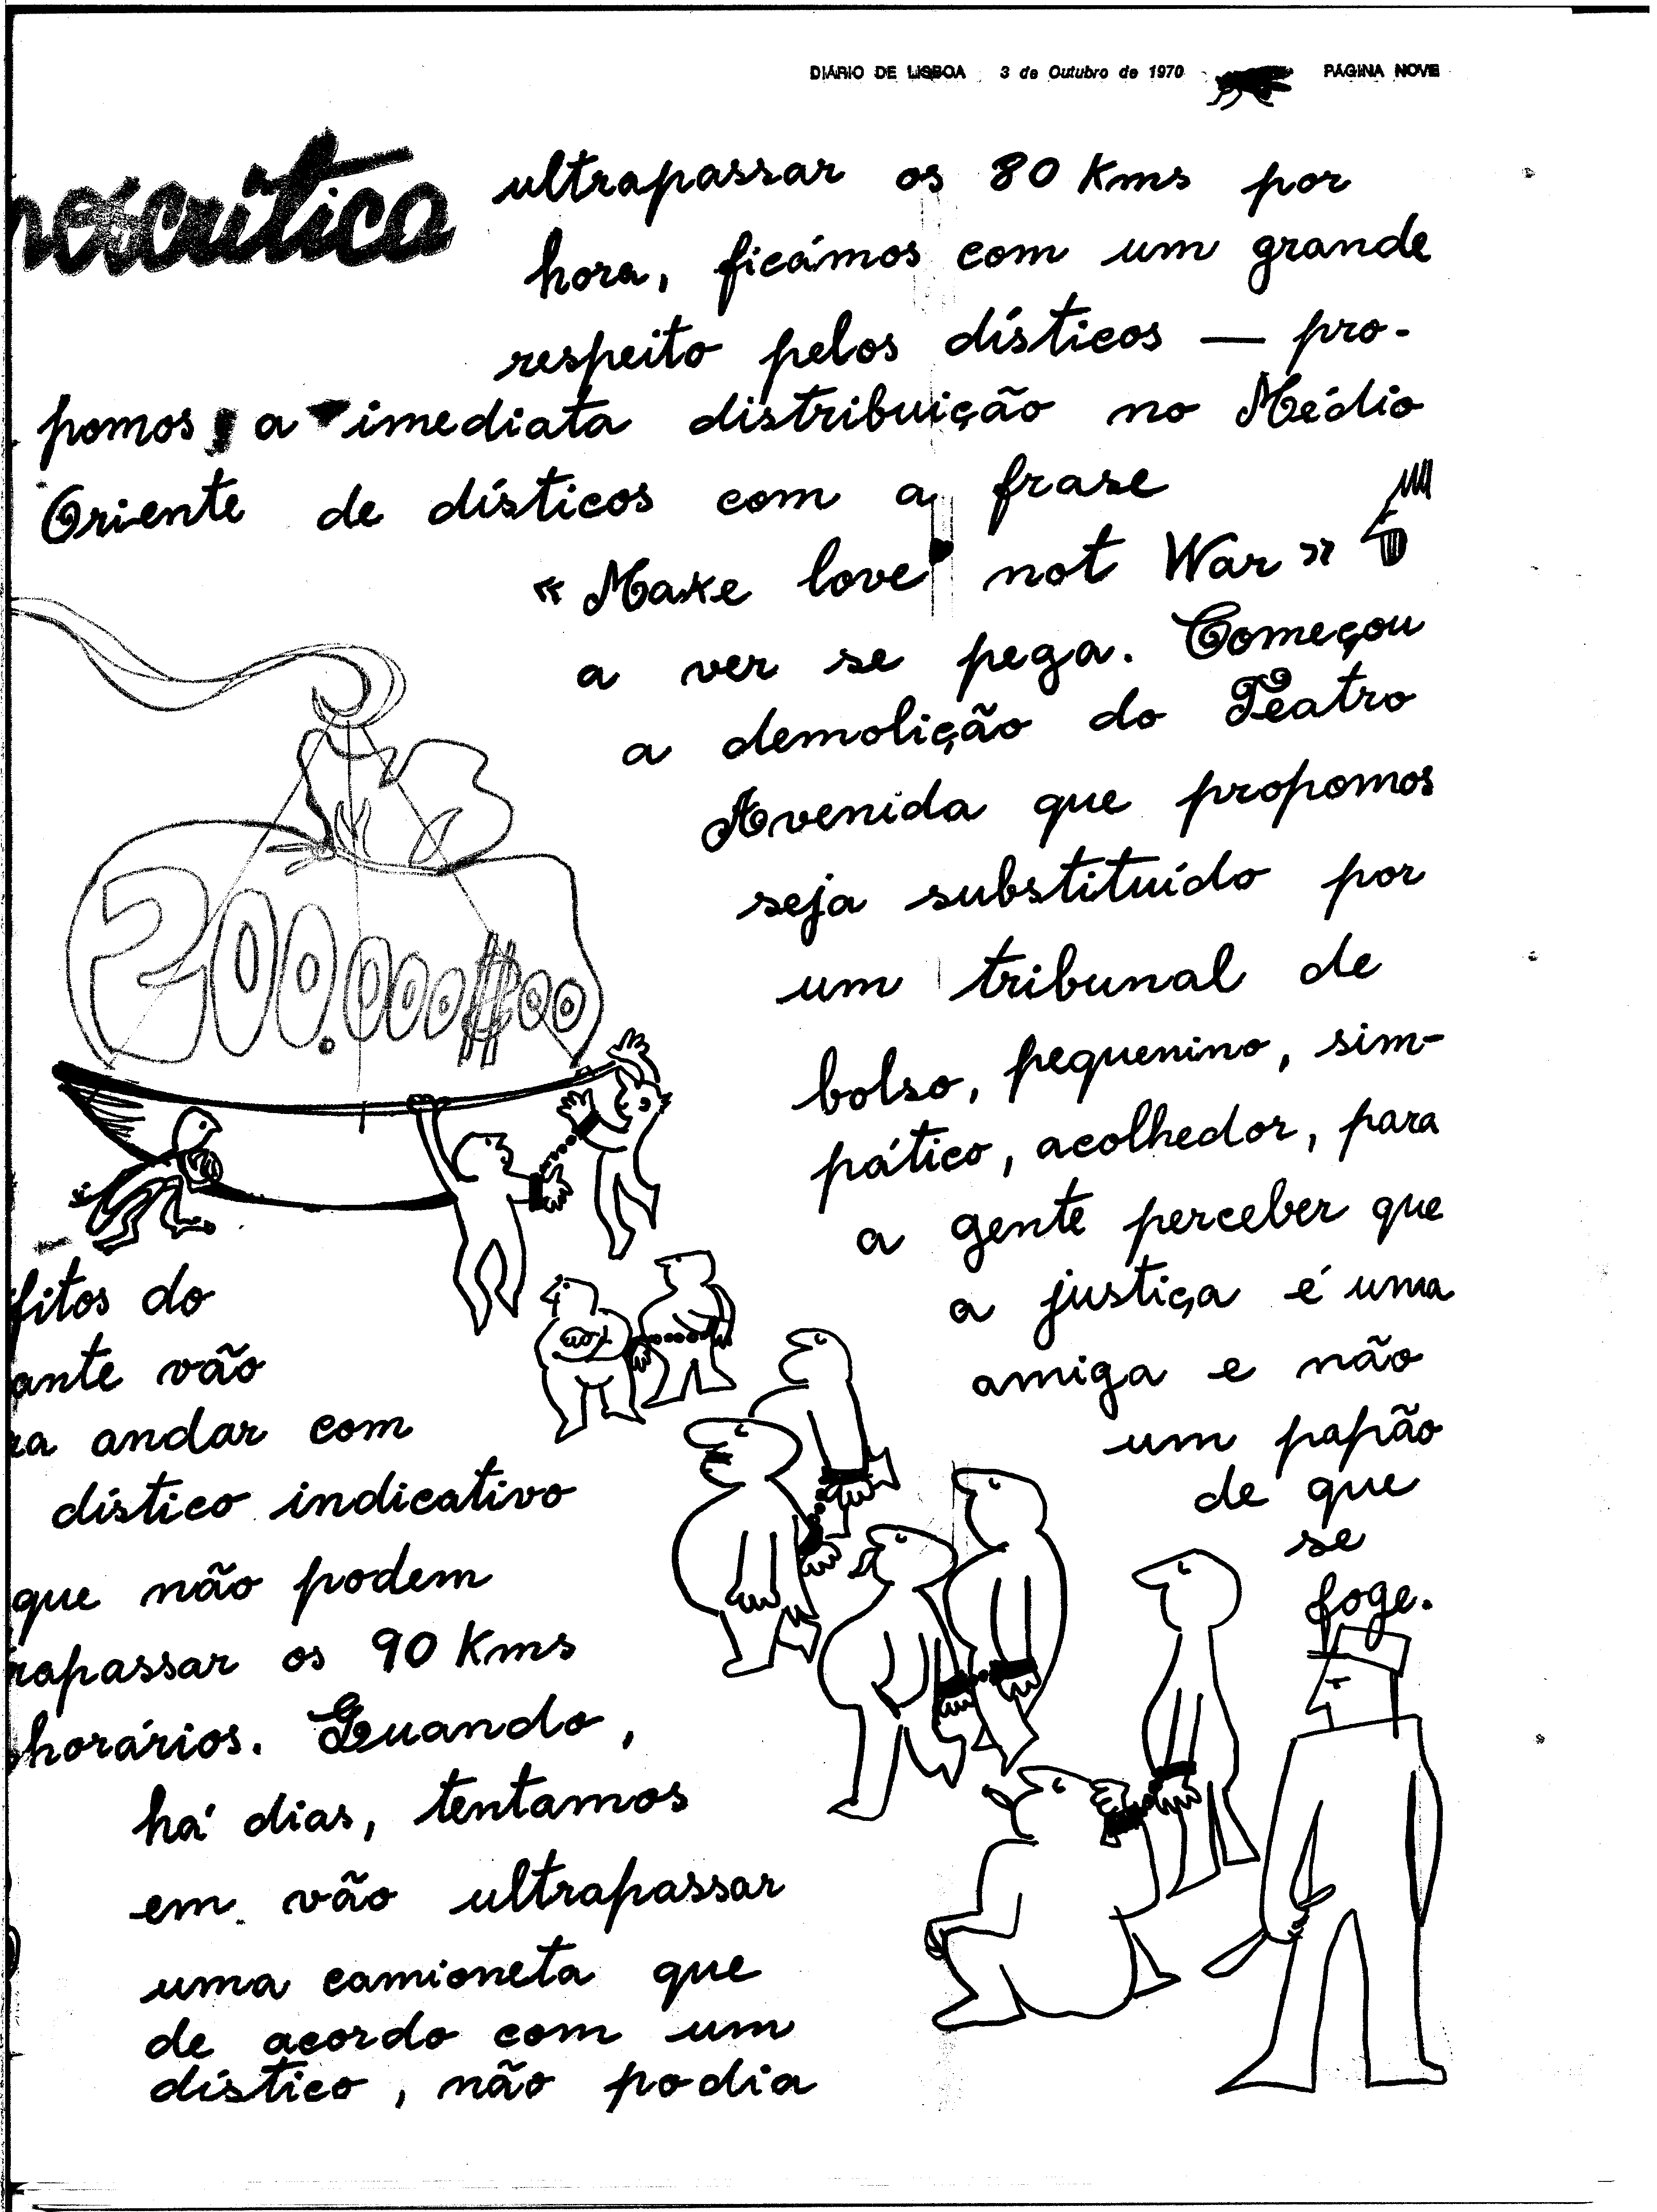 DIÁRIO DE LISBOA 3 de Outubro de 1970 PÁGINA NOVE
fitos do
ante vão
ra andar com
dístico indicativo
que não podem
rapassar os 90 Kms
horários. Quando,
há dias, tentamos
em vão ultrapassar
uma camioneta que
de acordo com um
dístico, não podia
ultrapassar os 80 Kms por
hora, ficámos com um grande
respeito pelos dísticos — pro-
pomos a imediata distribuição no Médio
Oriente de dísticos com a frase
«Make love not War»
a ver se pega. Começou
a demolição do Teatro
Avenida que propomos
seja substituído por
um tribunal de
bolso, pequenino, sim-
pático, acolhedor, para
a gente perceber que
a justiça é uma
amiga e não
um papão
de que
se
foge.
200.000$00